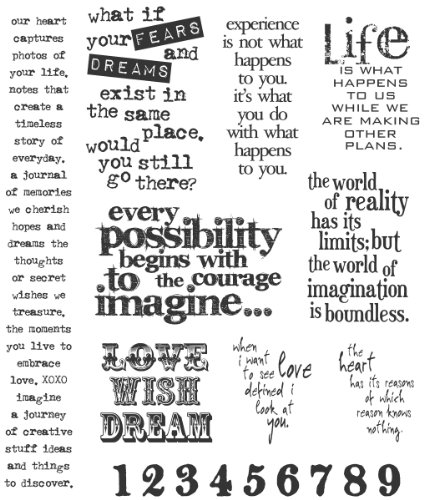 our heart
captures
photos of
your life.
notes that
create a
timeless
story of
everyday.
a journal
of memories
we cherish
hopes and
dreams the
thoughts
or secret
wishes we
treasure.
the moments
you live to
embrace
love. XOXO
imagine
a journey
of creative
stuff ideas
and things
to discover.
what if
your FEARS
and
DREAMS
exist in
the same
place.
would
you still
go there?
experience
is not what
happens
to you.
it's what
you do
with what
happens
to you.
Life
IS WHAT
HAPPENS
TO US
WHILE WE
ARE MAKING
OTHER
PLANS.
every
possibility
begins with
to the courage
imagine...
the world
of reality
has its
limits; but
the world of
imagination
is boundless.
LOVE
WISH
DREAM
when
i want
to see love
defined i
look at
you.
the
heart
has its reasons
of which
reason knows
nothing.
1 2 3 4 5 6 7 8 9